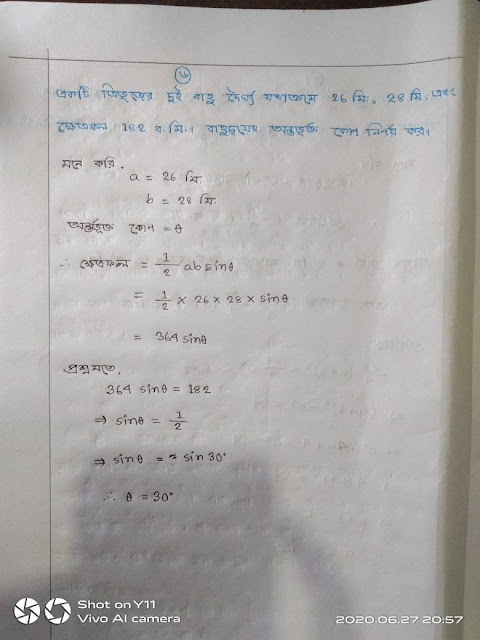 ১৬
একটি ত্রিভুজের দুই বাহু দৈর্ঘ্য যথাক্রমে 26 মি. 28 মি. এবং
ক্ষেত্রফল 182 ব: মি:। বাহুদ্বয়ের অন্তর্ভুক্ত কোন নির্ণয় কর।
মনে করি,
a = 26 মি.
b = 28 মি.
অর্ন্তভূক্ত কোন = θ
∴ ক্ষেত্রফল = 1/2 ab sinθ
= 1/2 × 26 × 28 × sinθ
= 364 sinθ
প্রশ্নমতে,
364 sinθ = 182
⇒ sinθ = 1/2
⇒ sinθ = sin 30°
∴ θ = 30°
Shot on Y11
Vivo AI camera
2020.06.27 20:57